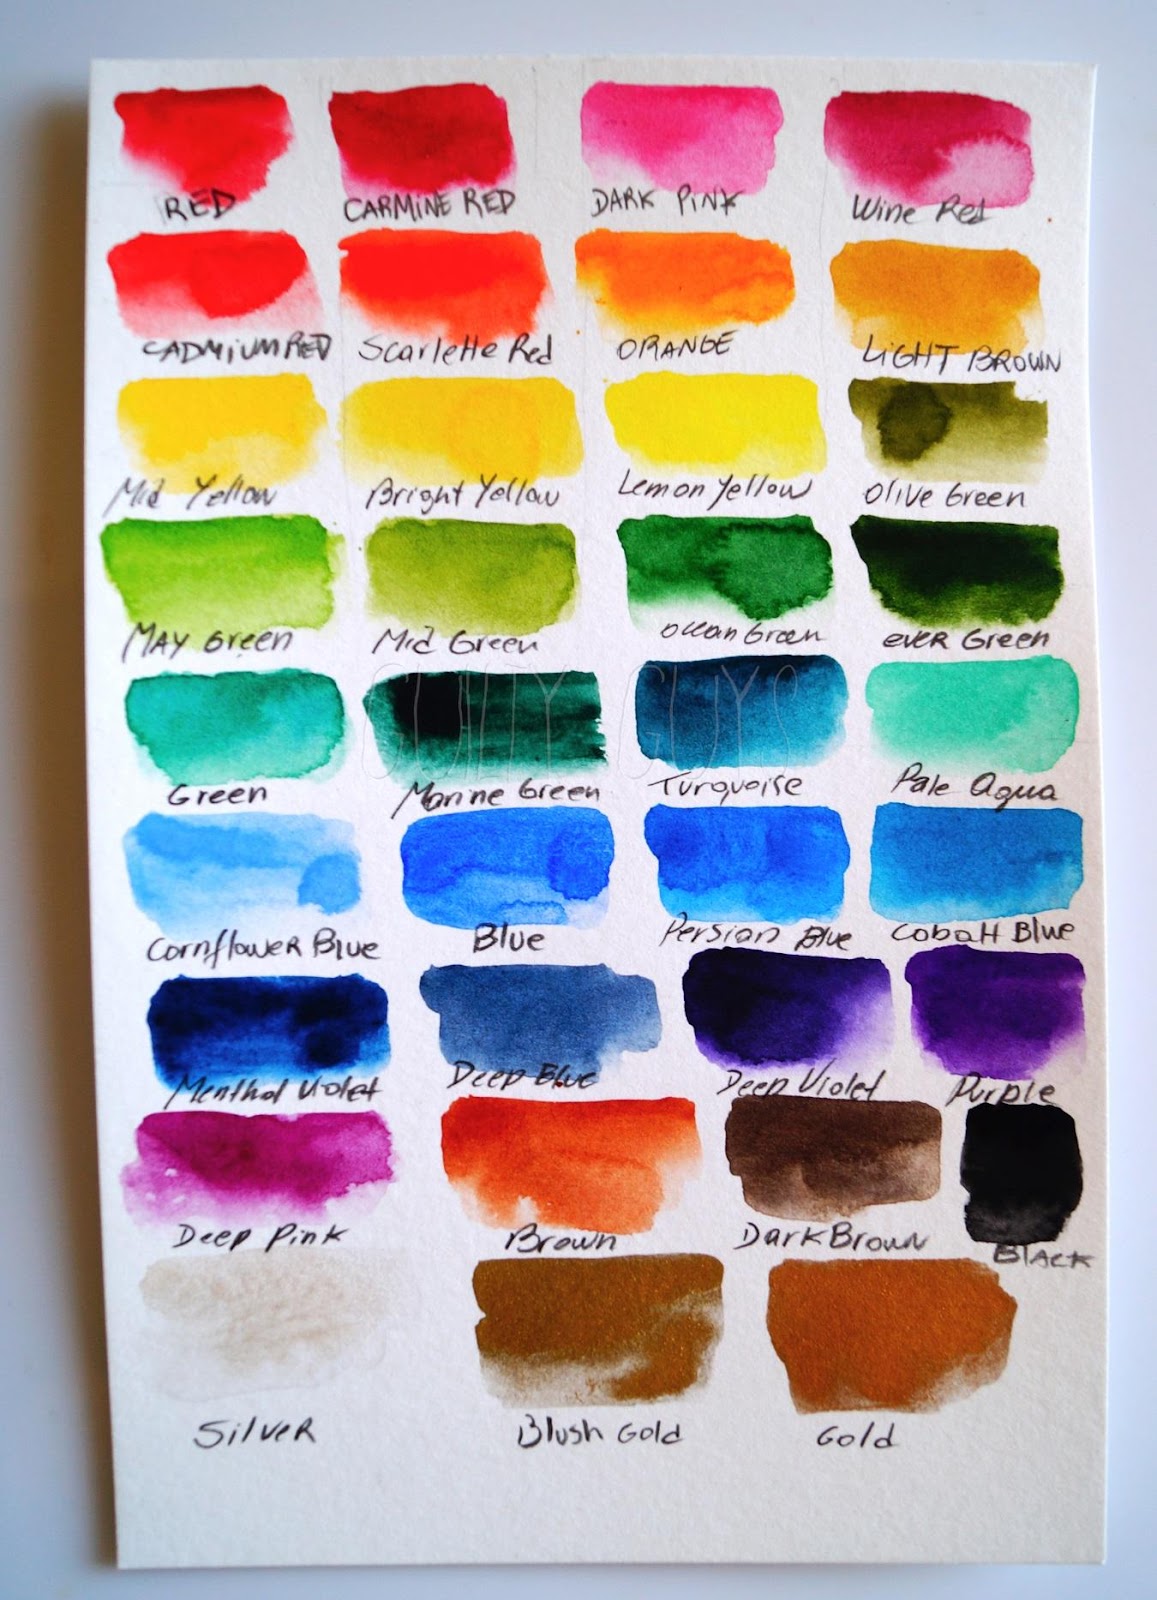 RED CARMINE RED DARK PINK Wine Red
CADMIUM RED Scarlette Red ORANGE LIGHT BROWN
Mid Yellow Bright Yellow Lemon Yellow Olive Green
MAY Green Mid Green Ocean Green ever Green
CUILTY GUYS
Green Marine Green Turquoise Pale Aqua
Cornflower Blue Blue Persian Blue Cobalt Blue
Menthol Violet Deep Blue Deep Violet Purple
Deep Pink Brown Dark Brown BLACK
Silver Blush Gold Gold